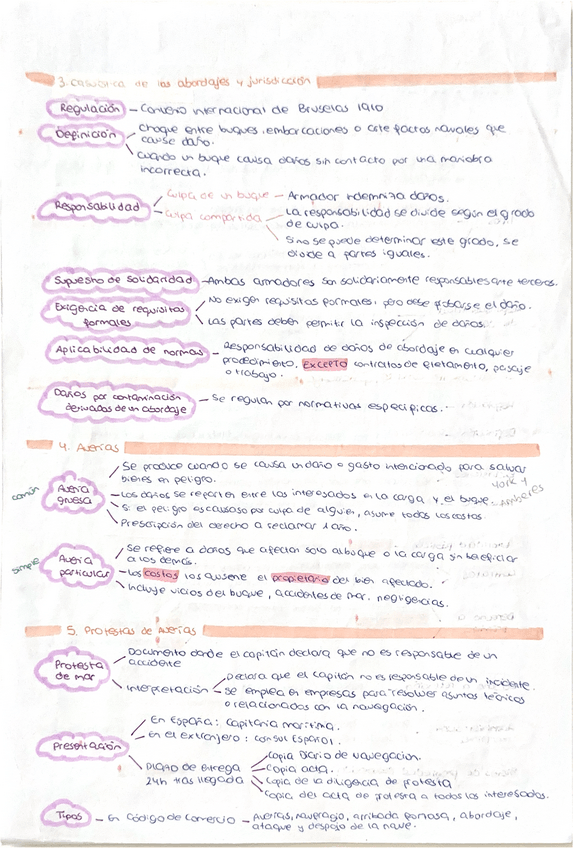 3. Casuística de los abordajes y jurisdicción
Regulación - Convenio internacional de Bruselas 1910
Definición
Choque entre buques, embarcaciones o artefactos navales que
cause daño.
Cuando un buque causa daños sin contacto por una maniobra
incorrecta.
Responsabilidad
Culpa de un buque - Armador indemniza daños.
Culpa compartida
La responsabilidad se divide según el grado
de culpa.
Si no se puede determinar este grado, se
divide a partes iguales.
Supuesto de solidaridad - Ambos armadores son solidariamente responsables ante terceros.
Exigencia de requisitos
formales
No exigen requisitos formales, pero debe probarse el daño.
Las partes deben permitir la inspección de daños.
Aplicabilidad de normas - Responsabilidad de daños de abordaje en cualquier
procedimiento, EXCEPTO contratos de fletamento, pasaje
o trabajo.
Daños por contaminación
derivados de un abordaje
- Se regulan por normativas específicas.
4. Averías
común
Avería
gruesa
Se produce cuando se causa un daño o gasto intencionado para salvar
bienes en peligro.
Los daños se reparten entre los interesados en la carga y el buque.
York y
Amberes
Si el peligro es causado por culpa de alguien, asume todos los costos.
Prescripción del derecho a reclamar 1 año.
simple
Avería
particular
Se refiere a daños que afectan solo al buque o la carga sin beneficiar
a los demás.
Los costos los asume el propietario del bien afectado.
Incluye vicios del buque, accidentes de mar, negligencias.
5. Protestas de Averías
Protesta
de mar
Documento donde el capitán declara que no es responsable de un
accidente
Interpretación
Declara que el capitán no es responsable de un incidente.
Se emplea en empresas para resolver asuntos técnicos
o relacionados con la navegación.
Presentación
En España: Capitanía marítima.
En el extranjero: consul Español.
Plazo de entrega
24h tras llegada
Copia Diario de Navegación.
Copia acta.
Copia de la diligencia de protesta
Copia del acta de protesta a todos los interesados.
Tipos - En Código de Comercio - Averías, naufragio, arribada forzosa, abordaje,
ataque y despojo de la nave.